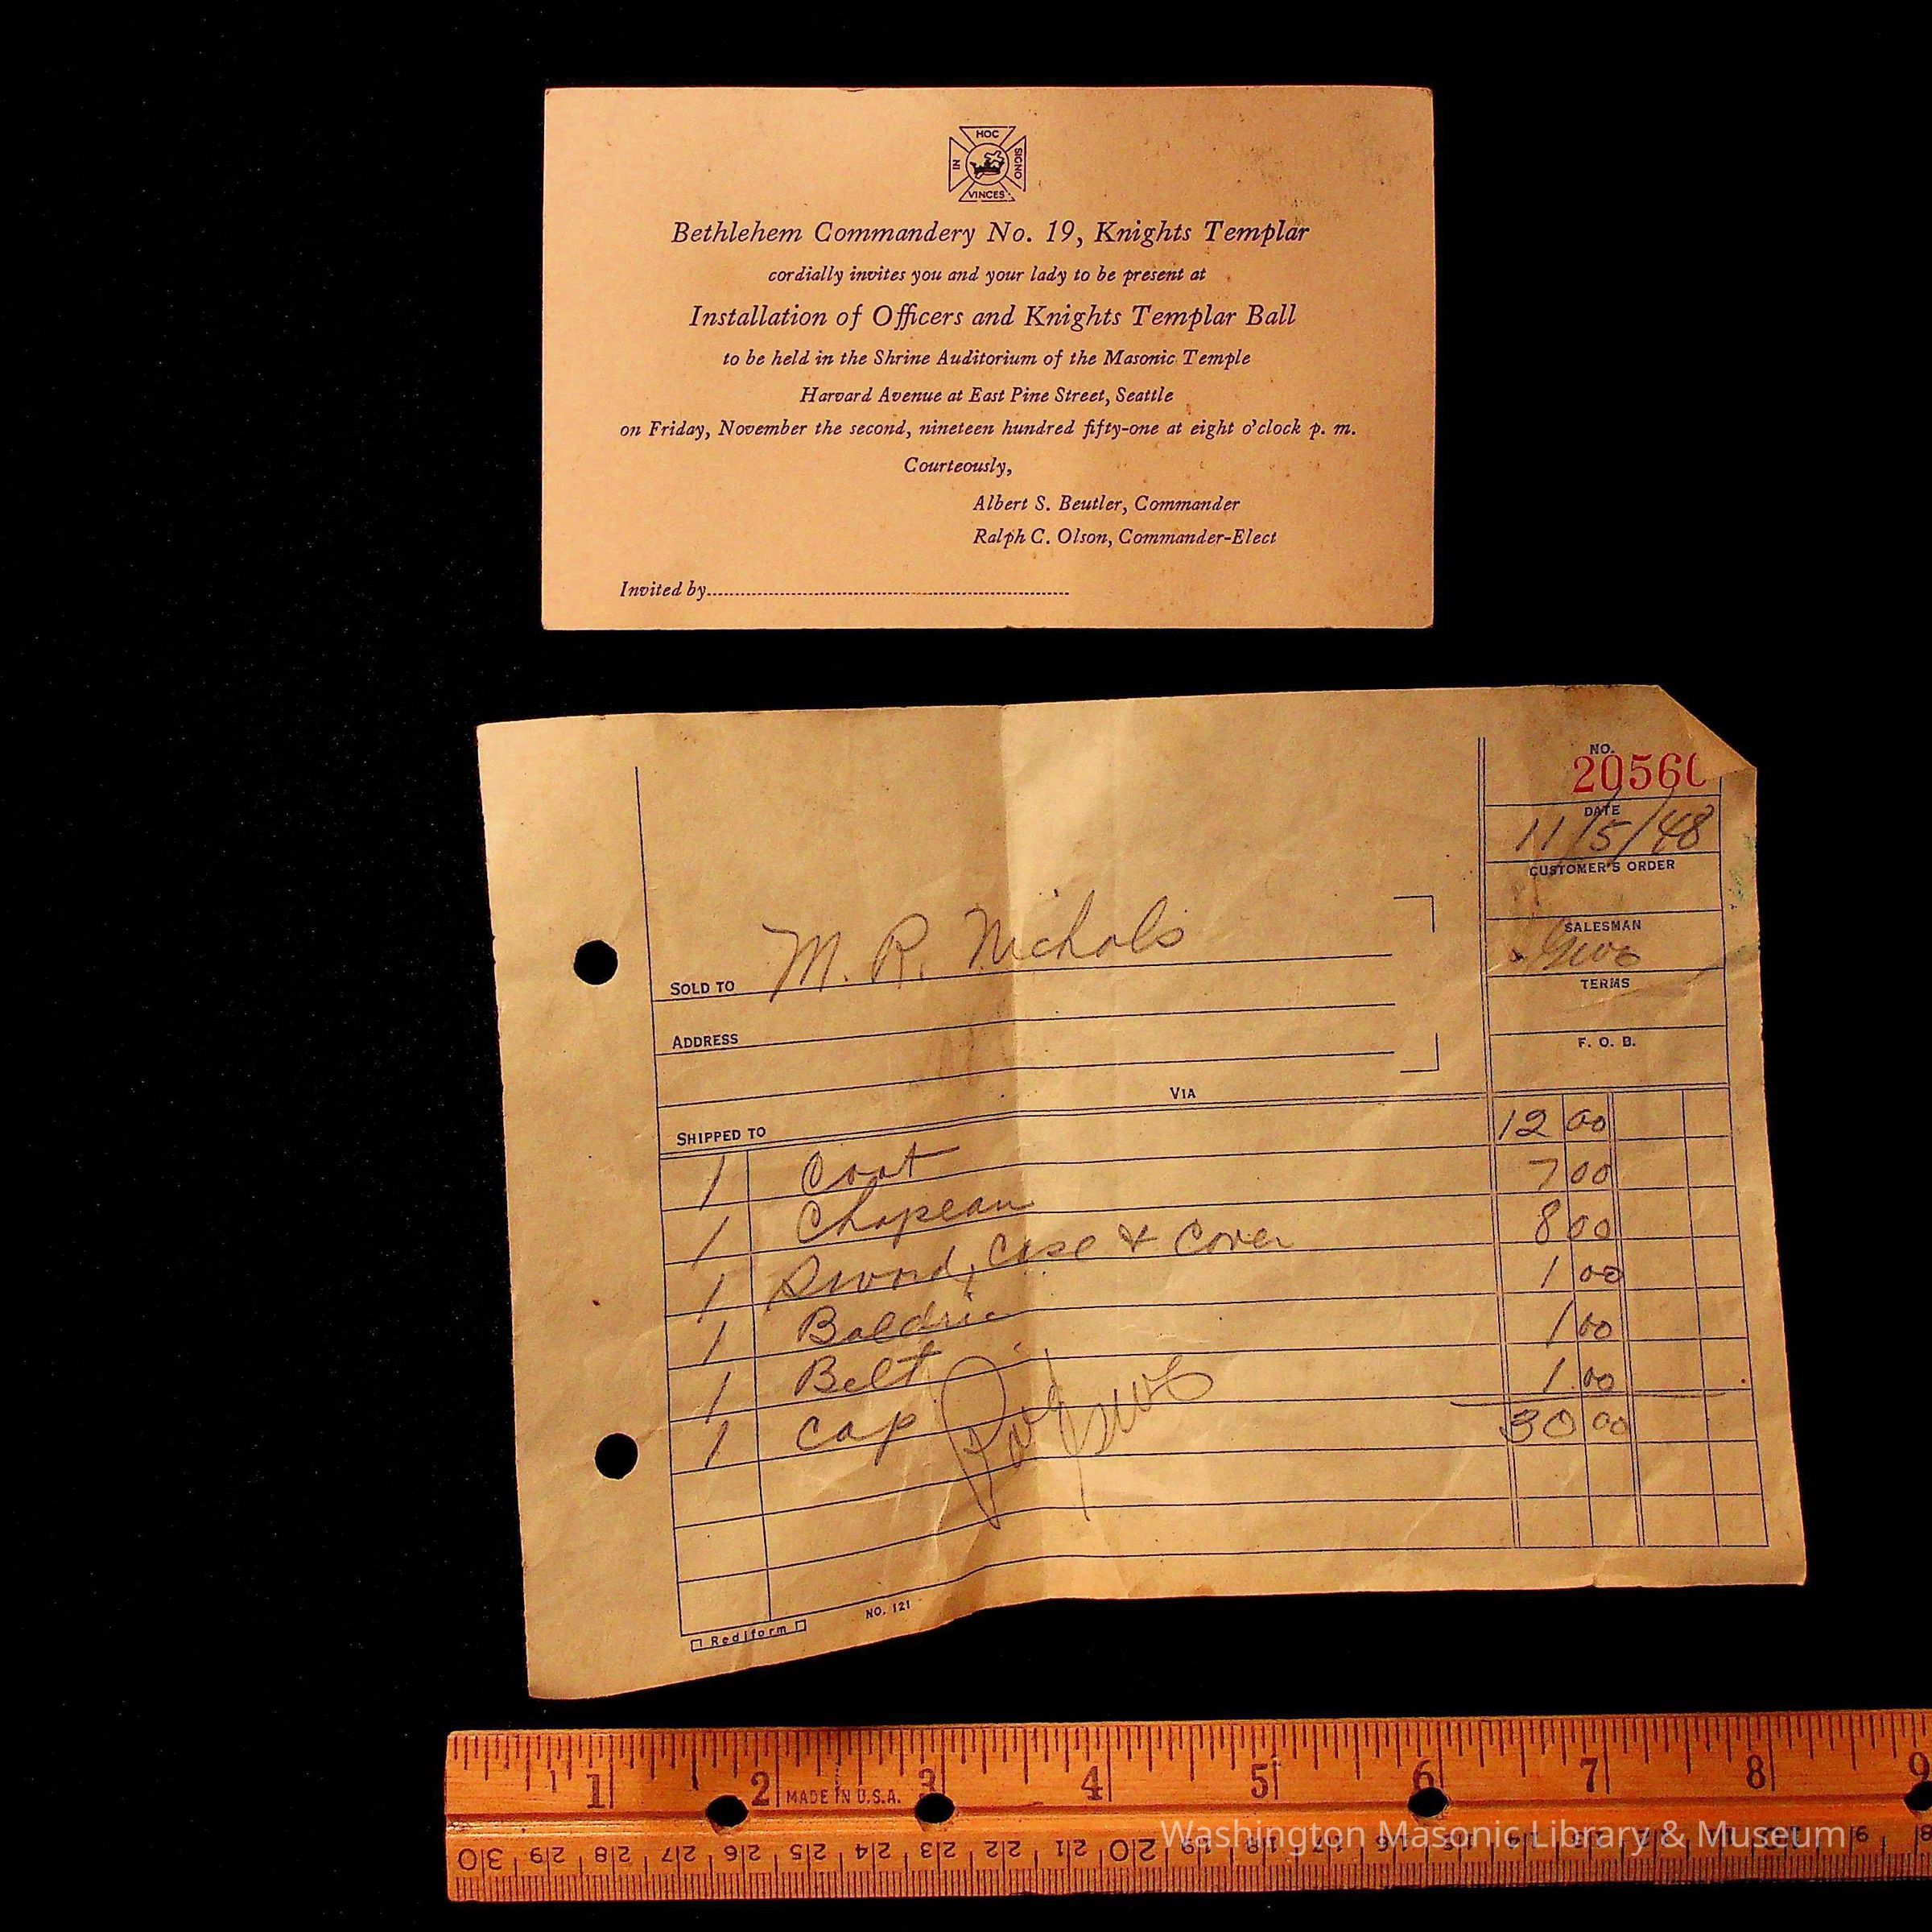 HOC
IN
SIGNO
VINCES
Bethlehem Commandery No. 19, Knights Templar
cordially invites you and your lady to be present at
Installation of Officers and Knights Templar Ball
to be held in the Shrine Auditorium of the Masonic Temple
Harvard Avenue at East Pine Street, Seattle
on Friday, November the second, nineteen hundred fifty-one at eight o'clock p. m.
Courteously,
Albert S. Beutler, Commander
Ralph C. Olson, Commander-Elect
Invited by
NO.
2056
DATE
11/5/48
CUSTOMER'S ORDER
SALESMAN
TERMS
F. O. B.
SOLD TO M. R. Nichols
ADDRESS
VIA
SHIPPED TO
1 Coat 12 00
1 Chapeau 7 00
1 Sword, Case & Cover 8 00
1 Baldric 1 00
1 Belt 1 00
1 Cap 1.00
30 00
Rediform
NO. 121
1 2 MADE IN U.S.A. 3 4 5 6 7 8 9
30 29 28 27 26 25 24 23 22 21 20 19 18 17 16 15 14
Washington Masonic Library & Museum